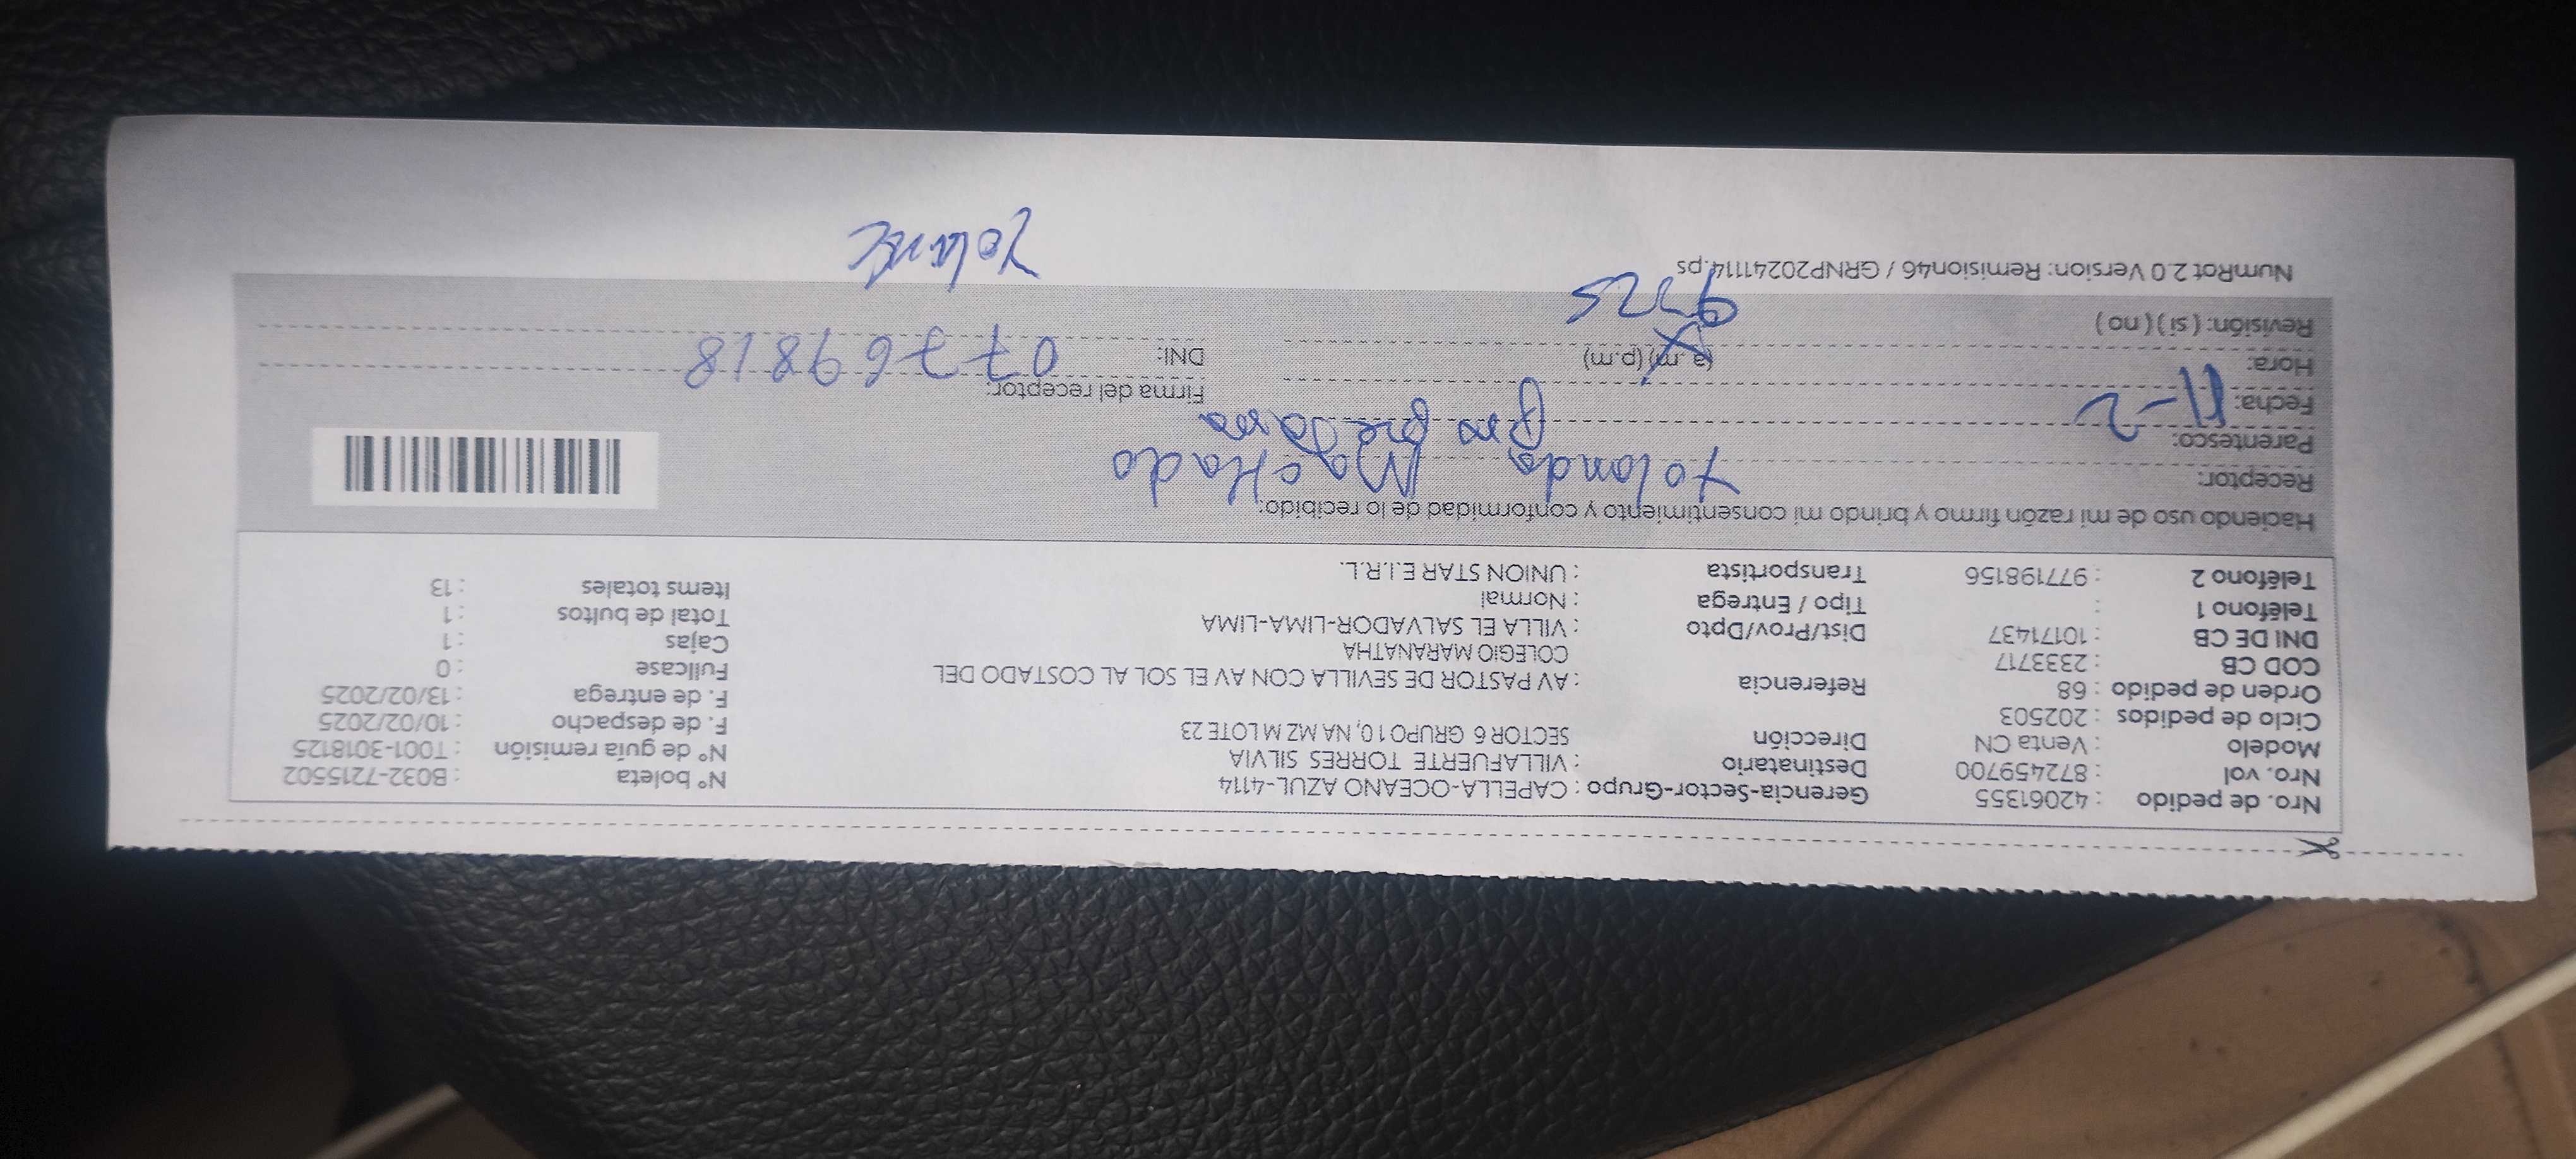 Nro. de pedido : 42061355 Gerencia-Sector-Grupo : CAPELLA-OCEANO AZUL-4114 N° boleta : B032-7215502
Nro. vol : 872459700 Destinatario : VILLAFUERTE TORRES SILVIA N° de guía remisión : T001-3018125
Modelo : Venta CN Dirección SECTOR 6 GRUPO 10, NA MZ M LOTE 23 F. de despacho : 10/02/2025
Ciclo de pedidos : 202503 F. de entrega : 13/02/2025
Orden de pedido : 68 Referencia : AV PASTOR DE SEVILLA CON AV EL SOL AL COSTADO DEL Fullcase : 0
COD CB : 2333717 COLEGIO MARANATHA Cajas : 1
DNI DE CB : 10171437 Dist/Prov/Dpto : VILLA EL SALVADOR-LIMA-LIMA Total de bultos : 1
Teléfono 1 : Tipo / Entrega : Normal Items totales : 13
Teléfono 2 : 977198156 Transportista : UNION STAR E.I.R.L.
Haciendo uso de mi razón firmo y brindo mi consentimiento y conformidad de lo recibido:
Receptor: Yolanda Machado
Parentesco:
Fecha: 11-2 Firma del receptor:
Hora: (a.m) (p.m) DNI: 07769818
Revisión: ( si ) ( no ) 9:25
NumRot 2.0 Version: Remision46 / GRNP20241114.ps